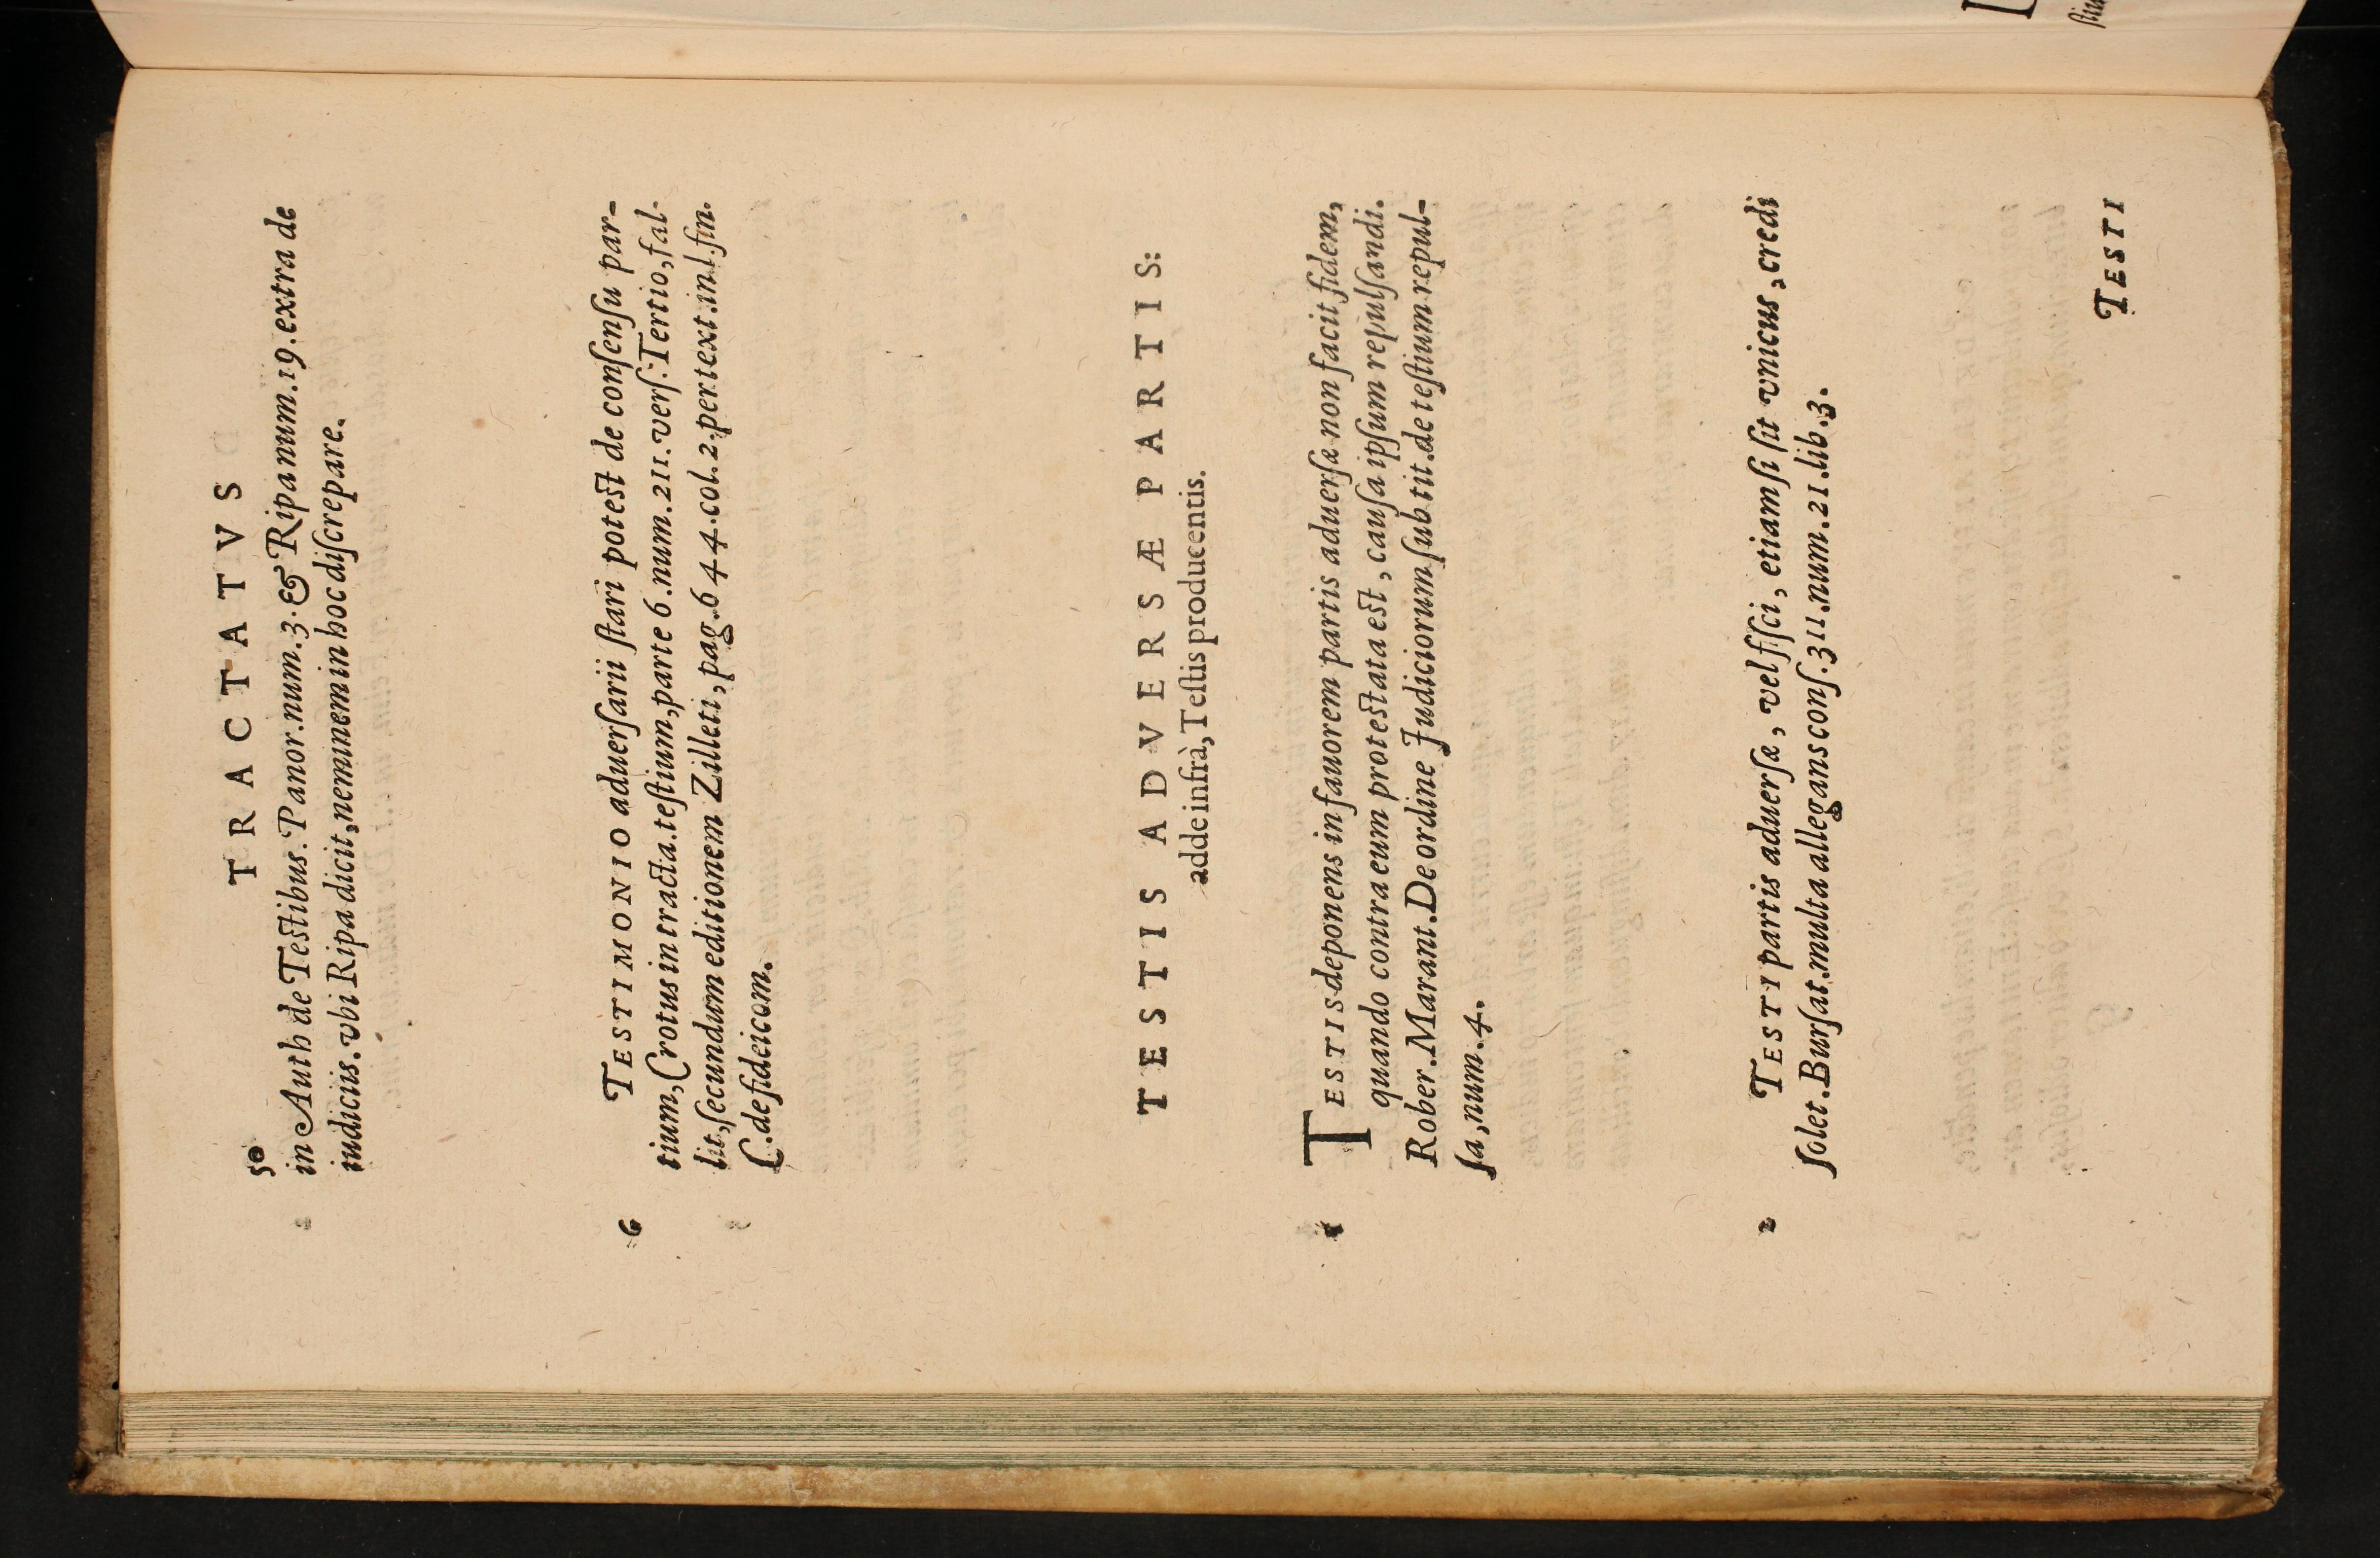 50
TRACTATVS
in Auth de Testibus. Panor. num. 3. & Ripa num. 19. extra de
iudiciis. vbi Ripa dicit, neminem in hoc discrepare.
6 TESTIMONIO aduersarii stari potest de consensu par-
tium, Crotus in tracta. testium, parte 6. num. 211. vers. Tertio, fal-
lit, secundum editionem Zilleti, pag. 644. col. 2. per text. in l. fin.
C. de fideicom.
TESTIS ADVERSÆ PARTIS:
adde infrà, Testis producentis.
1 TESTIS deponens in fauorem partis aduersæ non facit fidem,
quando contra eum protestata est, causa ipsum repulsandi.
Rober. Marant. De ordine Judiciorum sub tit. de testium repul-
sa, num. 4.
2 TESTI partis aduersæ, vel fisci, etiamsi sit vnicus, credi
solet. Bursat. multa allegans cons. 311. num. 21. lib. 3.
TESTI